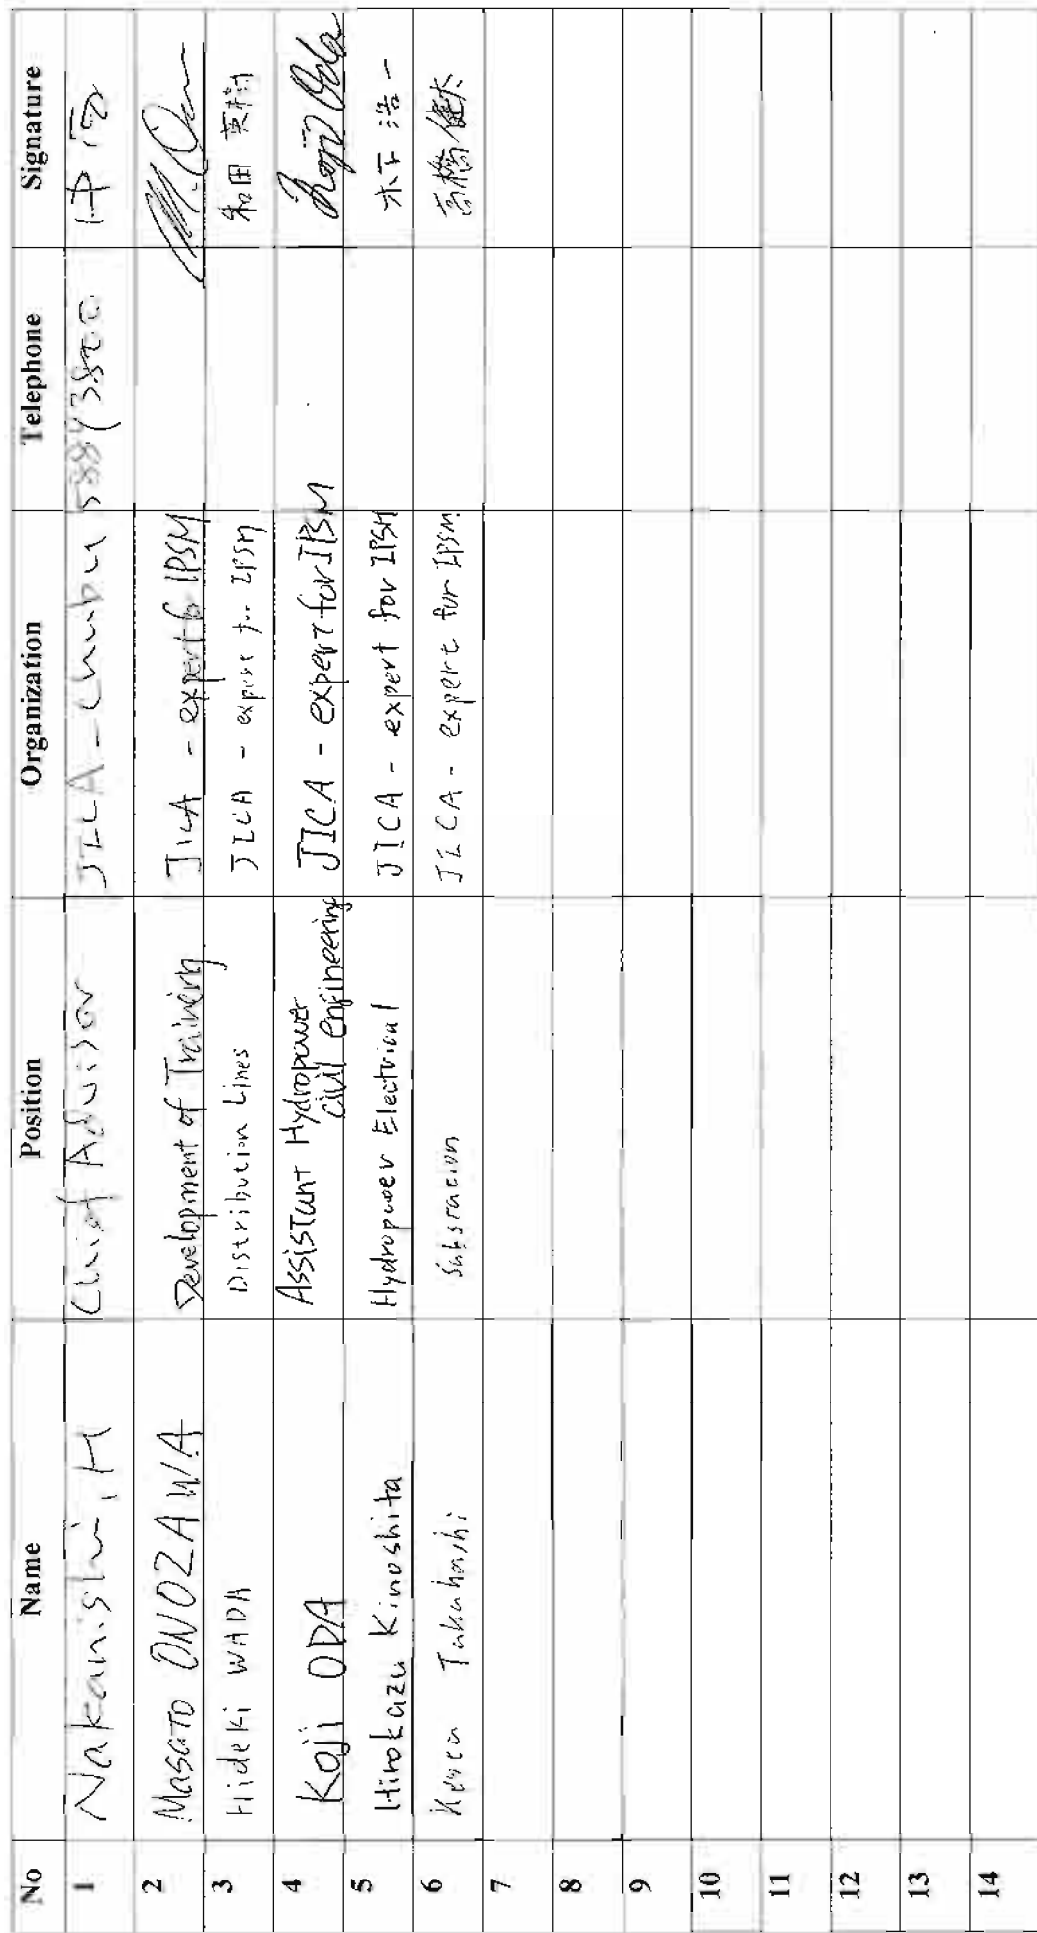 No Name Position Organization Telephone Signature
1 Nakanishi, H Chief Advisor JICA-Chubu 中西
2 Masato ONOZAWA Development of Training JICA - expert for IPSM
3 Hideki WADA Distribution Lines JICA - expert for IPSM 和田 英樹
4 Koji ODA Assistant Hydropower civil engineering JICA - expert for IPSM Koji Oda
5 Hirokazu Kinoshita Hydropower Electrical JICA - expert for IPSM 木下 浩一
6 Takahashi Substation JICA - expert for IPSM 高橋健太
7
8
9
10
11
12
13
14